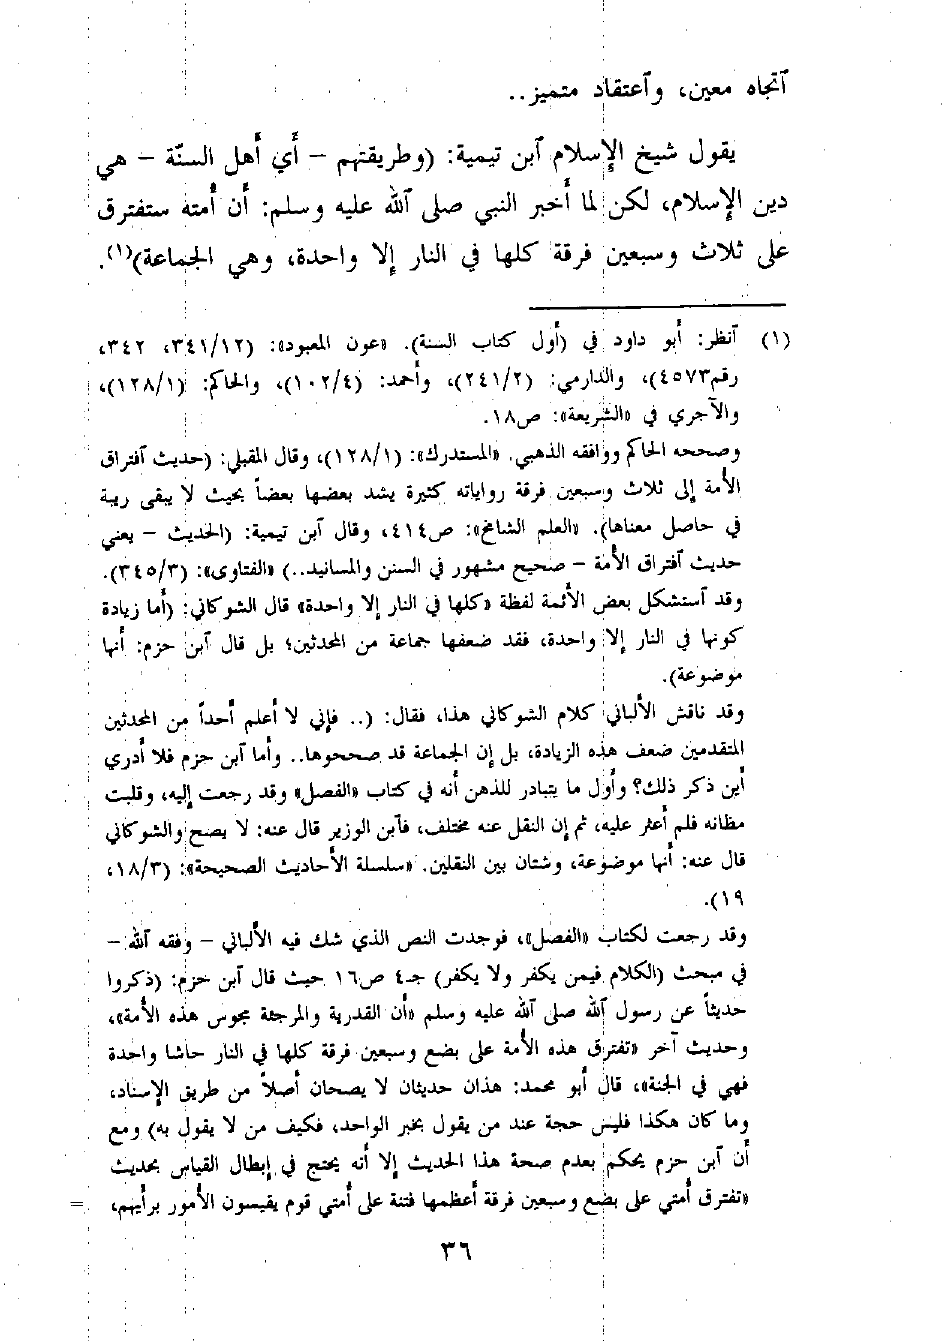 ٱتجاه معين، وٱعتقاد متميز..
يقول شيخ الإسلام ٱبن تيمية: (وطريقتهم – أي أهل السنّة – هي
دين الإسلام، لكن لما أخبر النبي صلى ٱلله عليه وسلم: أن أمته ستفترق
على ثلاث وسبعين فرقة كلها في النار إلا واحدة، وهي الجماعة)(١).
(١) ٱنظر: أبو داود في (أول كتاب السنة). «عون المعبود»: (٣٤١/١٢، ٣٤٢،
رقم٤٥٧٣)، والدارمي: (٢٤١/٢)، وأحمد: (١٠٢/٤)، والحاكم: (١٢٨/١)،
والآجري في «الشريعة»: ص١٨.
وصححه الحاكم ووافقه الذهبي. «المستدرك»: (١٢٨/١)، وقال المقبلي: (حديث ٱفتراق
الأمة إلى ثلاث وسبعين فرقة رواياته كثيرة يشد بعضها بعضاً بحيث لا يبقى ريبة
في حاصل معناها). «العلم الشامخ»: ص٤١٤، وقال ٱبن تيمية: (الحديث – يعني
حديث ٱفتراق الأمة – صحيح مشهور في السنن والمسانيد..) «الفتاوى»: (٣٤٥/٣).
وقد ٱستشكل بعض الأئمة لفظة «كلها في النار إلا واحدة» قال الشوكاني: (أما زيادة
كونها في النار إلا واحدة، فقد ضعفها جماعة من المحدثين؛ بل قال ٱبن حزم: أنها
موضوعة).
وقد ناقش الألباني كلام الشوكاني هذا، فقال: (.. فإني لا أعلم أحداً من المحدثين
المتقدمين ضعف هذه الزيادة، بل إن الجماعة قد صححوها.. وأما ٱبن حزم فلا أدري
أين ذكر ذلك؟ وأول ما يتبادر للذهن أنه في كتاب «الفصل» وقد رجعت إليه، وقلبت
مظانه فلم أعثر عليه، ثم إن النقل عنه مختلف، فٱبن الوزير قال عنه: لا يصح والشوكاني
قال عنه: أنها موضوعة، وشتان بين النقلين. «سلسلة الأحاديث الصحيحة»: (١٨/٣،
١٩).
وقد رجعت لكتاب «الفصل»، فوجدت النص الذي شك فيه الألباني – وفقه ٱلله –
في مبحث (الكلام فيمن يكفر ولا يكفر) جـ٤ ص١٦ حيث قال ٱبن حزم: (ذكروا
حديثاً عن رسول ٱلله صلى ٱلله عليه وسلم «أن القدرية والمرجئة مجوس هذه الأمة»،
وحديث آخر «تفترق هذه الأمة على بضع وسبعين فرقة كلها في النار حاشا واحدة
فهي في الجنة»، قال أبو محمد: هذان حديثان لا يصحان أصلاً من طريق الإسناد،
وما كان هكذا فليس حجة عند من يقول بخبر الواحد، فكيف من لا يقول به) ومع
أن ٱبن حزم يحكم بعدم صحة هذا الحديث إلا أنه يحتج في إبطال القياس بحديث
«تفترق أمتي على بضع وسبعين فرقة أعظمها فتنة على أمتي قوم يقيسون الأمور برأيهم، =
٣٦